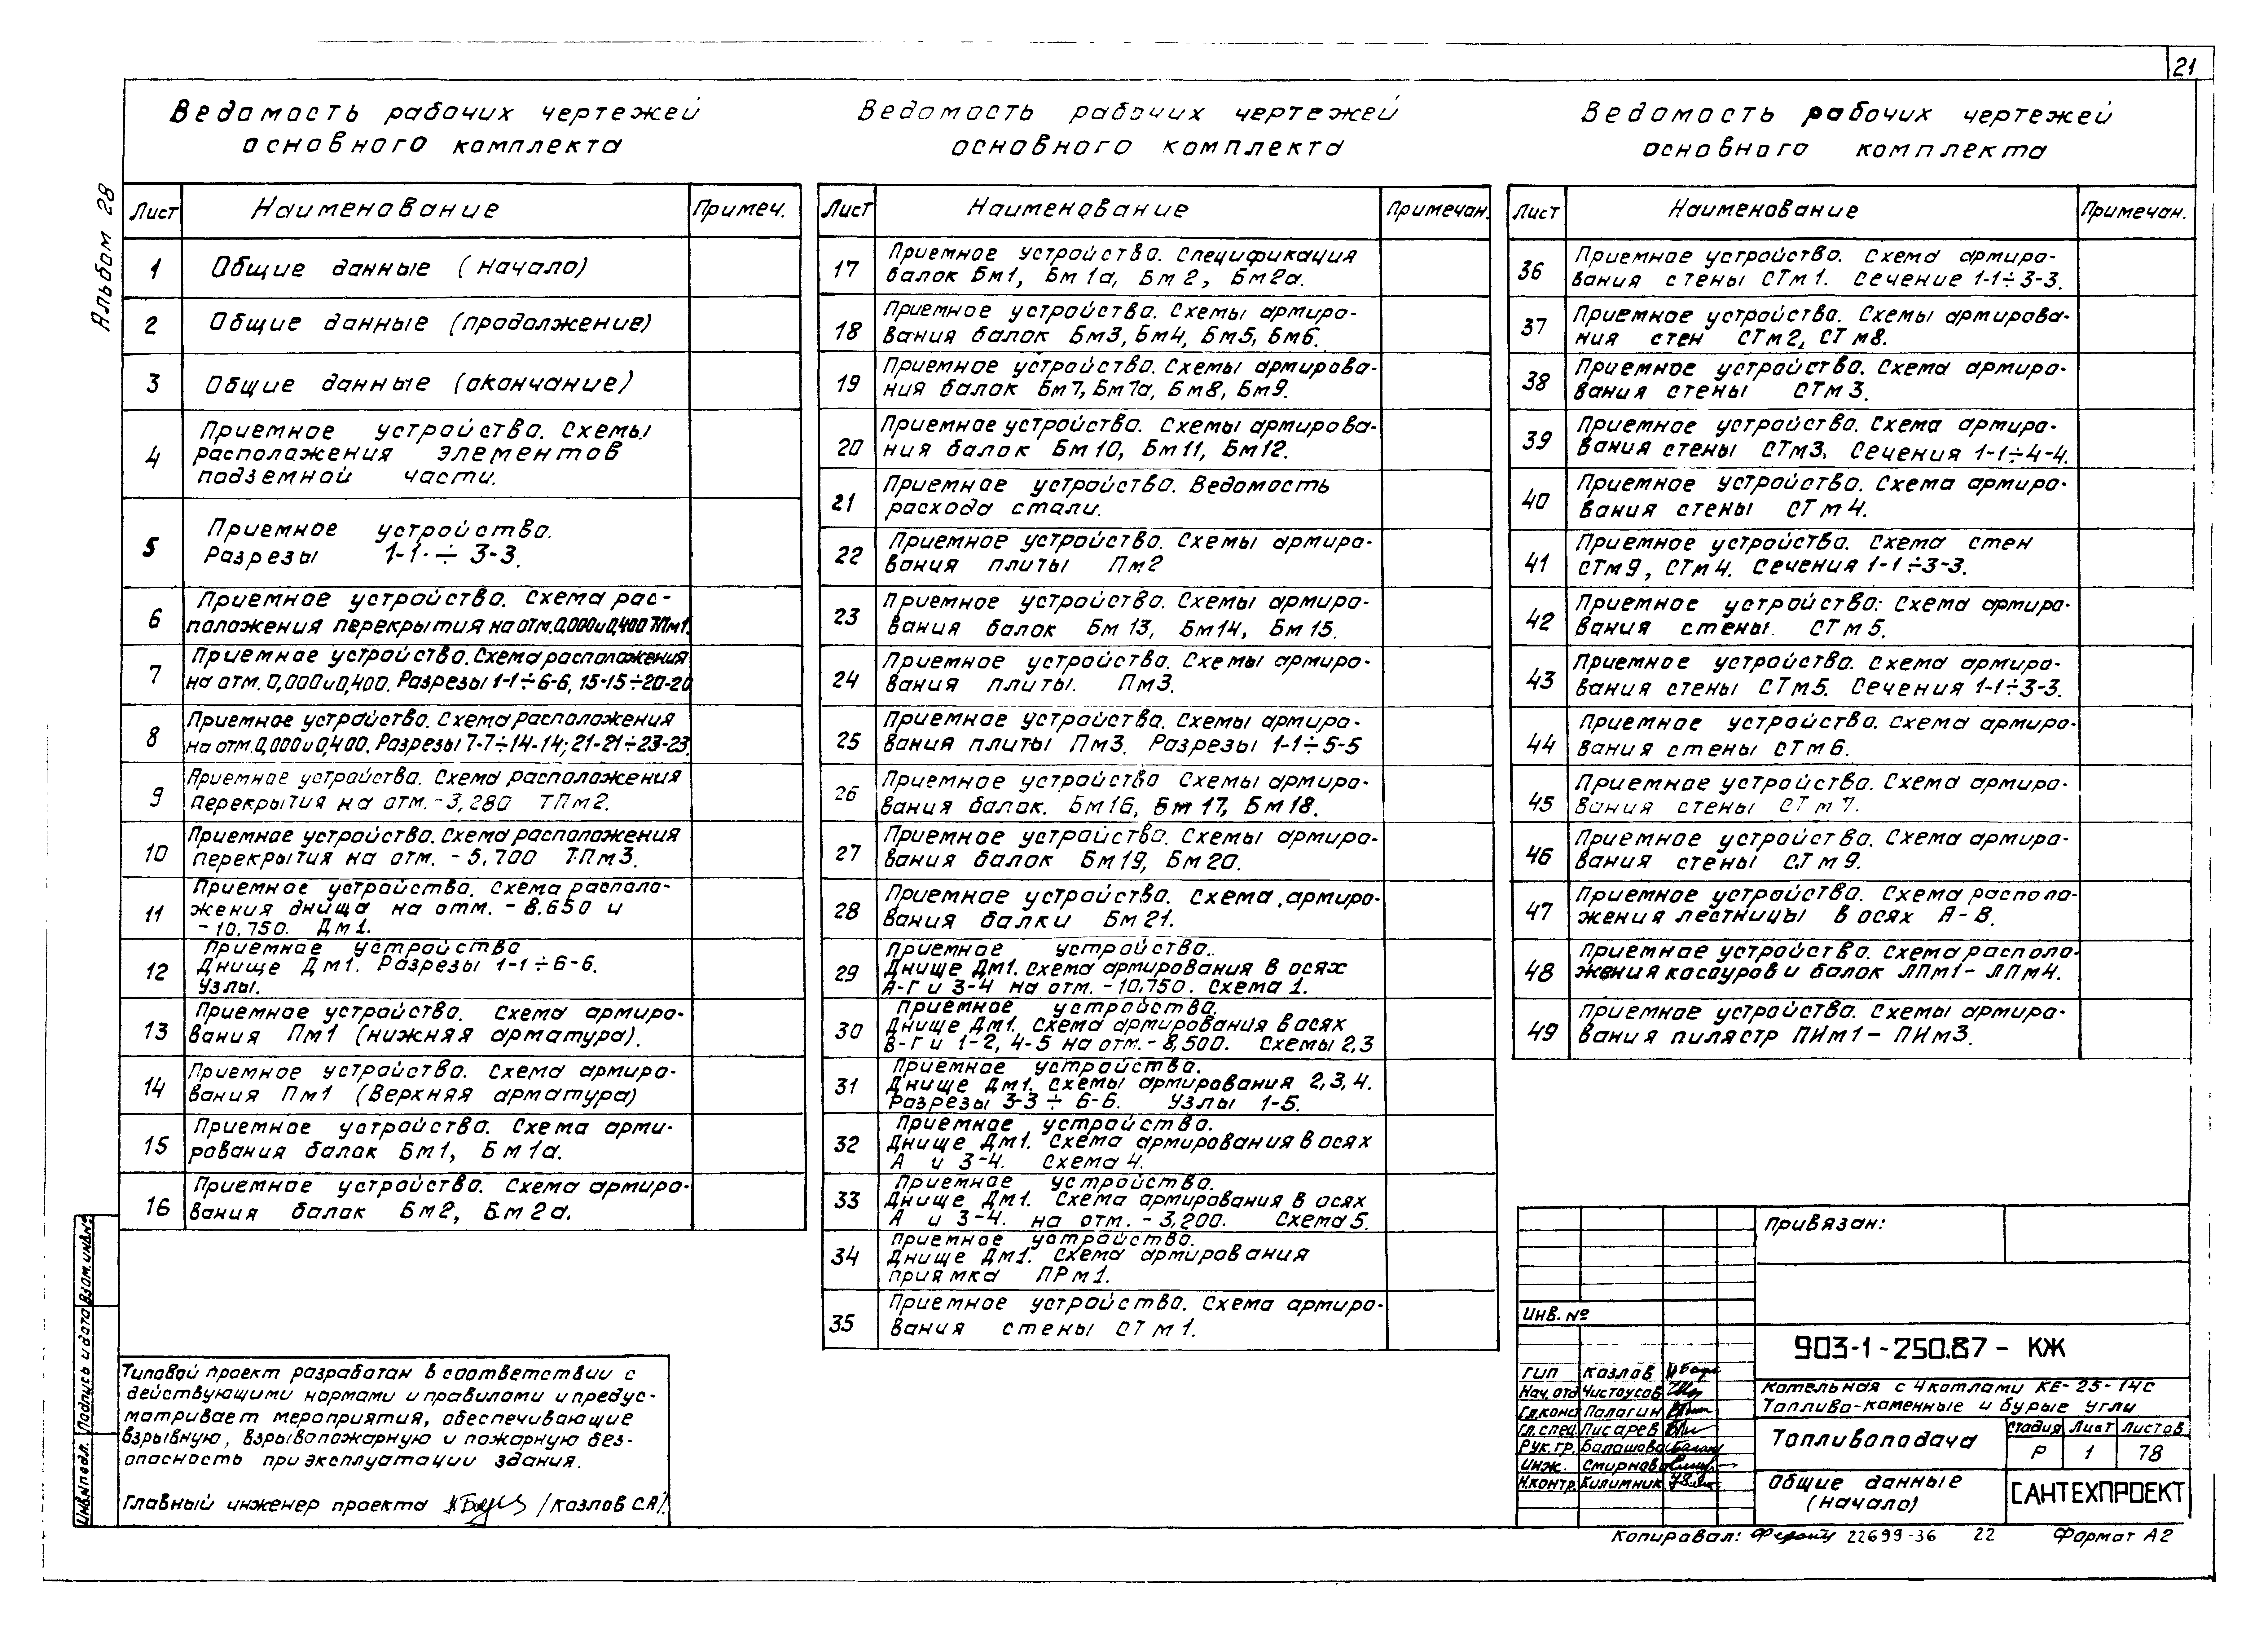 21
Альбом 28
Ведомость рабочих чертежей
основного комплекта
Лист Наименование Примеч.
1 Общие данные (начало)
2 Общие данные (продолжение)
3 Общие данные (окончание)
4 Приемное устройство. Схемы
расположения элементов
подземной части.
5 Приемное устройство.
Разрезы 1-1÷3-3.
6 Приемное устройство. Схема рас-
положения перекрытия на отм. 0,000 и 0,400 ТПм1.
7 Приемное устройство. Схема расположения
на отм. 0,000 и 0,400. Разрезы 1-1÷6-6, 15-15÷20-20
8 Приемное устройство. Схема расположения
на отм. 0,000 и 0,400. Разрезы 7-7÷14-14; 21-21÷23-23.
9 Приемное устройство. Схема расположения
перекрытия на отм. -3,280 ТПм2.
10 Приемное устройство. Схема расположения
перекрытия на отм. -5,700 ТПм3.
11 Приемное устройство. Схема располо-
жения днища на отм. -8.650 и
-10.750. Дм1.
12 Приемное устройство
Днище Дм1. Разрезы 1-1÷6-6.
Узлы.
13 Приемное устройство. Схема армиро-
вания Пм1 (нижняя арматура).
14 Приемное устройство. Схема армиро-
вания Пм1 (Верхняя арматура)
15 Приемное устройство. Схема арми-
рования балок Бм1, Бм1а.
16 Приемное устройство. Схема армиро-
вания балок Бм2, Бм2а.
Ведомость рабочих чертежей
основного комплекта
Лист Наименование Примечан.
17 Приемное устройство. Спецификация
балок Бм1, Бм1а, Бм2, Бм2а.
18 Приемное устройство. Схемы армиро-
вания балок Бм3, Бм4, Бм5, Бм6.
19 Приемное устройство. Схемы армирова-
ния балок Бм7, Бм7а, Бм8, Бм9.
20 Приемное устройство. Схемы армирова-
ния балок Бм10, Бм11, Бм12.
21 Приемное устройство. Ведомость
расхода стали.
22 Приемное устройство. Схемы армиро-
вания плиты Пм2
23 Приемное устройство. Схемы армиро-
вания балок Бм13, Бм14, Бм15.
24 Приемное устройство. Схемы армиро-
вания плиты. Пм3.
25 Приемное устройство. Схемы армиро-
вания плиты Пм3. Разрезы 1-1÷5-5
26 Приемное устройство Схемы армиро-
вания балок. Бм16, Бм17, Бм18.
27 Приемное устройство. Схемы армиро-
вания балок Бм19, Бм20.
28 Приемное устройство. Схема армиро-
вания балки Бм21.
29 Приемное устройство.
Днище Дм1. Схема армирования в осях
А-Г и 3-4 на отм. -10,750. Схема 1.
30 Приемное устройство.
Днище Дм1. Схема армирования в осях
В-Г и 1-2, 4-5 на отм. -8,500. Схемы 2,3
31 Приемное устройство.
Днище Дм1. Схемы армирования 2,3,4.
Разрезы 3-3÷6-6. Узлы 1-5.
32 Приемное устройство.
Днище Дм1. Схема армирования в осях
А и 3-4. Схема 4.
33 Приемное устройство.
Днище Дм1. Схема армирования в осях
А и 3-4. на отм. -3,200. Схема 5.
34 Приемное устройство.
Днище Дм1. Схема армирования
приямка ПРм1.
35 Приемное устройство. Схема армиро-
вания стены СТм1.
Ведомость рабочих чертежей
основного комплекта
Лист Наименование Примечан.
36 Приемное устройство. Схема армиро-
вания стены СТм1. Сечение 1-1÷3-3.
37 Приемное устройство. Схемы армирова-
ния стен СТм2, СТм8.
38 Приемное устройство. Схема армиро-
вания стены СТм3.
39 Приемное устройство. Схема армиро-
вания стены СТм3. Сечения 1-1÷4-4.
40 Приемное устройство. Схема армиро-
вания стены СТм4.
41 Приемное устройство. Схема стен
СТм9, СТм4. Сечения 1-1÷3-3.
42 Приемное устройство. Схема армиро-
вания стены. СТм5.
43 Приемное устройство. Схема армиро-
вания стены СТм5. Сечения 1-1÷3-3.
44 Приемное устройство. Схема армиро-
вания стены СТм6.
45 Приемное устройство. Схема армиро-
вания стены СТм7.
46 Приемное устройство. Схема армиро-
вания стены СТм9.
47 Приемное устройство. Схема располо-
жения лестницы в осях А-В.
48 Приемное устройство. Схема располо-
жения косоуров и балок ЛПм1-ЛПм4.
49 Приемное устройство. Схемы армиро-
вания пилястр ПИм1-ПИм3.
Типовой проект разработан в соответствии с
действующими нормами и правилами и предус-
матривает мероприятия, обеспечивающие
взрывную, взрывопожарную и пожарную без-
опасность при эксплуатации здания.
Главный инженер проекта /Козлов С.А/.
Инв.№подл. Подпись и дата Взам.инв.№
Привязан:
Инв. №
903-1-250.87 - КЖ
ГИП Козлов
Нач.отд Чистоусов
Гл.конст Полагин
Гл.спец. Писарев
Рук.гр. Балашова
Инж. Смирнов
Н.контр. Килимник
Котельная с 4 котлами КЕ-25-14с
Топливо-каменные и бурые угли
Топливоподача
Стадия Лист Листов
Р 1 78
Общие данные
(начало)
САНТЕХПРОЕКТ
Копировал: 22699-36 22 Формат А2